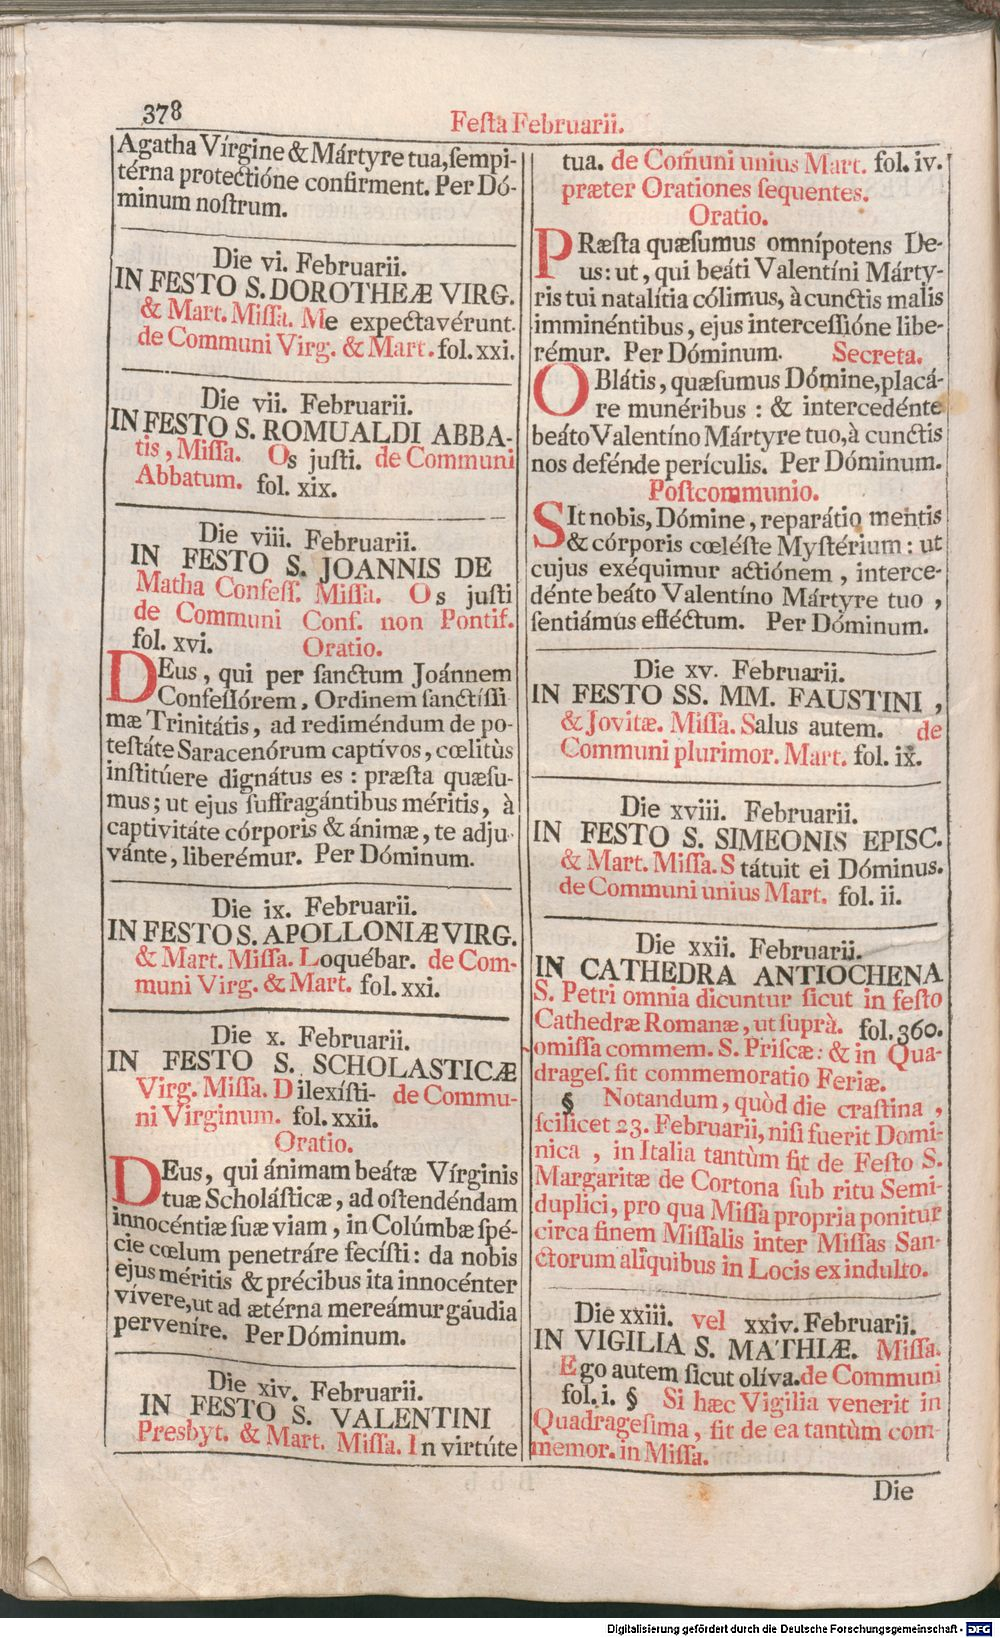 378
Feſta Februarii.
Agatha Vírgine & Mártyre tua, ſempi-
térna protectióne confirment. Per Dó-
minum noſtrum.
Die vi. Februarii.
IN FESTO S. DOROTHEÆ VIRG.
& Mart. Miſſa. Me expectavérunt.
de Communi Virg. & Mart. fol. xxi.
Die vii. Februarii.
IN FESTO S. ROMUALDI ABBA-
tis, Miſſa. Os juſti. de Communi
Abbatum. fol. xix.
Die viii. Februarii.
IN FESTO S. JOANNIS DE
Matha Confeſſ. Miſſa. Os juſti
de Communi Conf. non Pontif.
fol. xvi. Oratio.
DEus, qui per ſanctum Joánnem
Confeſſórem, Ordinem ſanctíſſi
mæ Trinitátis, ad rediméndum de po-
teſtáte Saracenórum captívos, cœlitùs
inſtitúere dignátus es: præſta quæſu-
mus; ut ejus ſuffragántibus méritis, à
captivitáte córporis & ánimæ, te adju-
vánte, liberémur. Per Dóminum.
Die ix. Februarii.
IN FESTO S. APOLLONIÆ VIRG.
& Mart. Miſſa. Loquébar. de Com-
muni Virg. & Mart. fol. xxi.
Die x. Februarii.
IN FESTO S. SCHOLASTICÆ
Virg. Miſſa. Dilexíſti- de Commu-
ni Virginum. fol. xxii.
Oratio.
DEus, qui ánimam beátæ Vírginis
tuæ Scholáſticæ, ad oſtendéndam
innocéntiæ ſuæ viam, in Colúmbæ ſpé-
cie cœlum penetráre fecíſti: da nobis
ejus méritis & précibus ita innocénter
vívere, ut ad ætérna mereámur gáudia
perveníre. Per Dóminum.
Die xiv. Februarii.
IN FESTO S. VALENTINI
Presbyt. & Mart. Miſſa. In virtúte
tua. de Com̃uni unius Mart. fol. iv.
præter Orationes ſequentes.
Oratio.
PRæſta quæſumus omnípotens De-
us: ut, qui beáti Valentíni Márty-
ris tui natalítia cólimus, à cunctis malis
imminéntibus, ejus interceſſióne libe-
rémur. Per Dóminum. Secreta.
OBlátis, quæſumus Dómine, placá-
re munéribus: & intercedénte
beáto Valentíno Mártyre tuo, à cunctis
nos defénde perículis. Per Dóminum.
Poſtcommunio.
SIt nobis, Dómine, reparátio mentis
& córporis cœléſte Myſtérium: ut
cujus exéquimur actiónem, interce-
dénte beáto Valentíno Mártyre tuo,
ſentiámus efféctum. Per Dóminum.
Die xv. Februarii.
IN FESTO SS. MM. FAUSTINI,
& Jovitæ. Miſſa. Salus autem. de
Communi plurimor. Mart. fol. ix.
Die xviii. Februarii.
IN FESTO S. SIMEONIS EPISC.
& Mart. Miſſa. Státuit ei Dóminus.
de Communi unius Mart. fol. ii.
Die xxii. Februarii.
IN CATHEDRA ANTIOCHENA
S. Petri omnia dicuntur ſicut in feſto
Cathedræ Romanæ, ut ſuprà. fol. 360.
omiſſa commem. S. Priſcæ: & in Qua-
drageſ. fit commemoratio Feriæ.
§ Notandum, quòd die craſtina,
ſcilicet 23. Februarii, niſi fuerit Domi-
nica, in Italia tantùm fit de Feſto S.
Margaritæ de Cortona ſub ritu Semi-
duplici, pro qua Miſſa propria ponitur
circa finem Miſſalis inter Miſſas San-
ctorum aliquibus in Locis ex indulto.
Die xxiii. vel xxiv. Februarii.
IN VIGILIA S. MATHIÆ. Miſſa.
Ego autem ſicut olíva. de Communi
fol. i. § Si hæc Vigilia venerit in
Quadrageſima, fit de ea tantùm com-
memor. in Miſſa.
Die
Digitalisierung gefördert durch die Deutsche Forschungsgemeinschaft - DFG